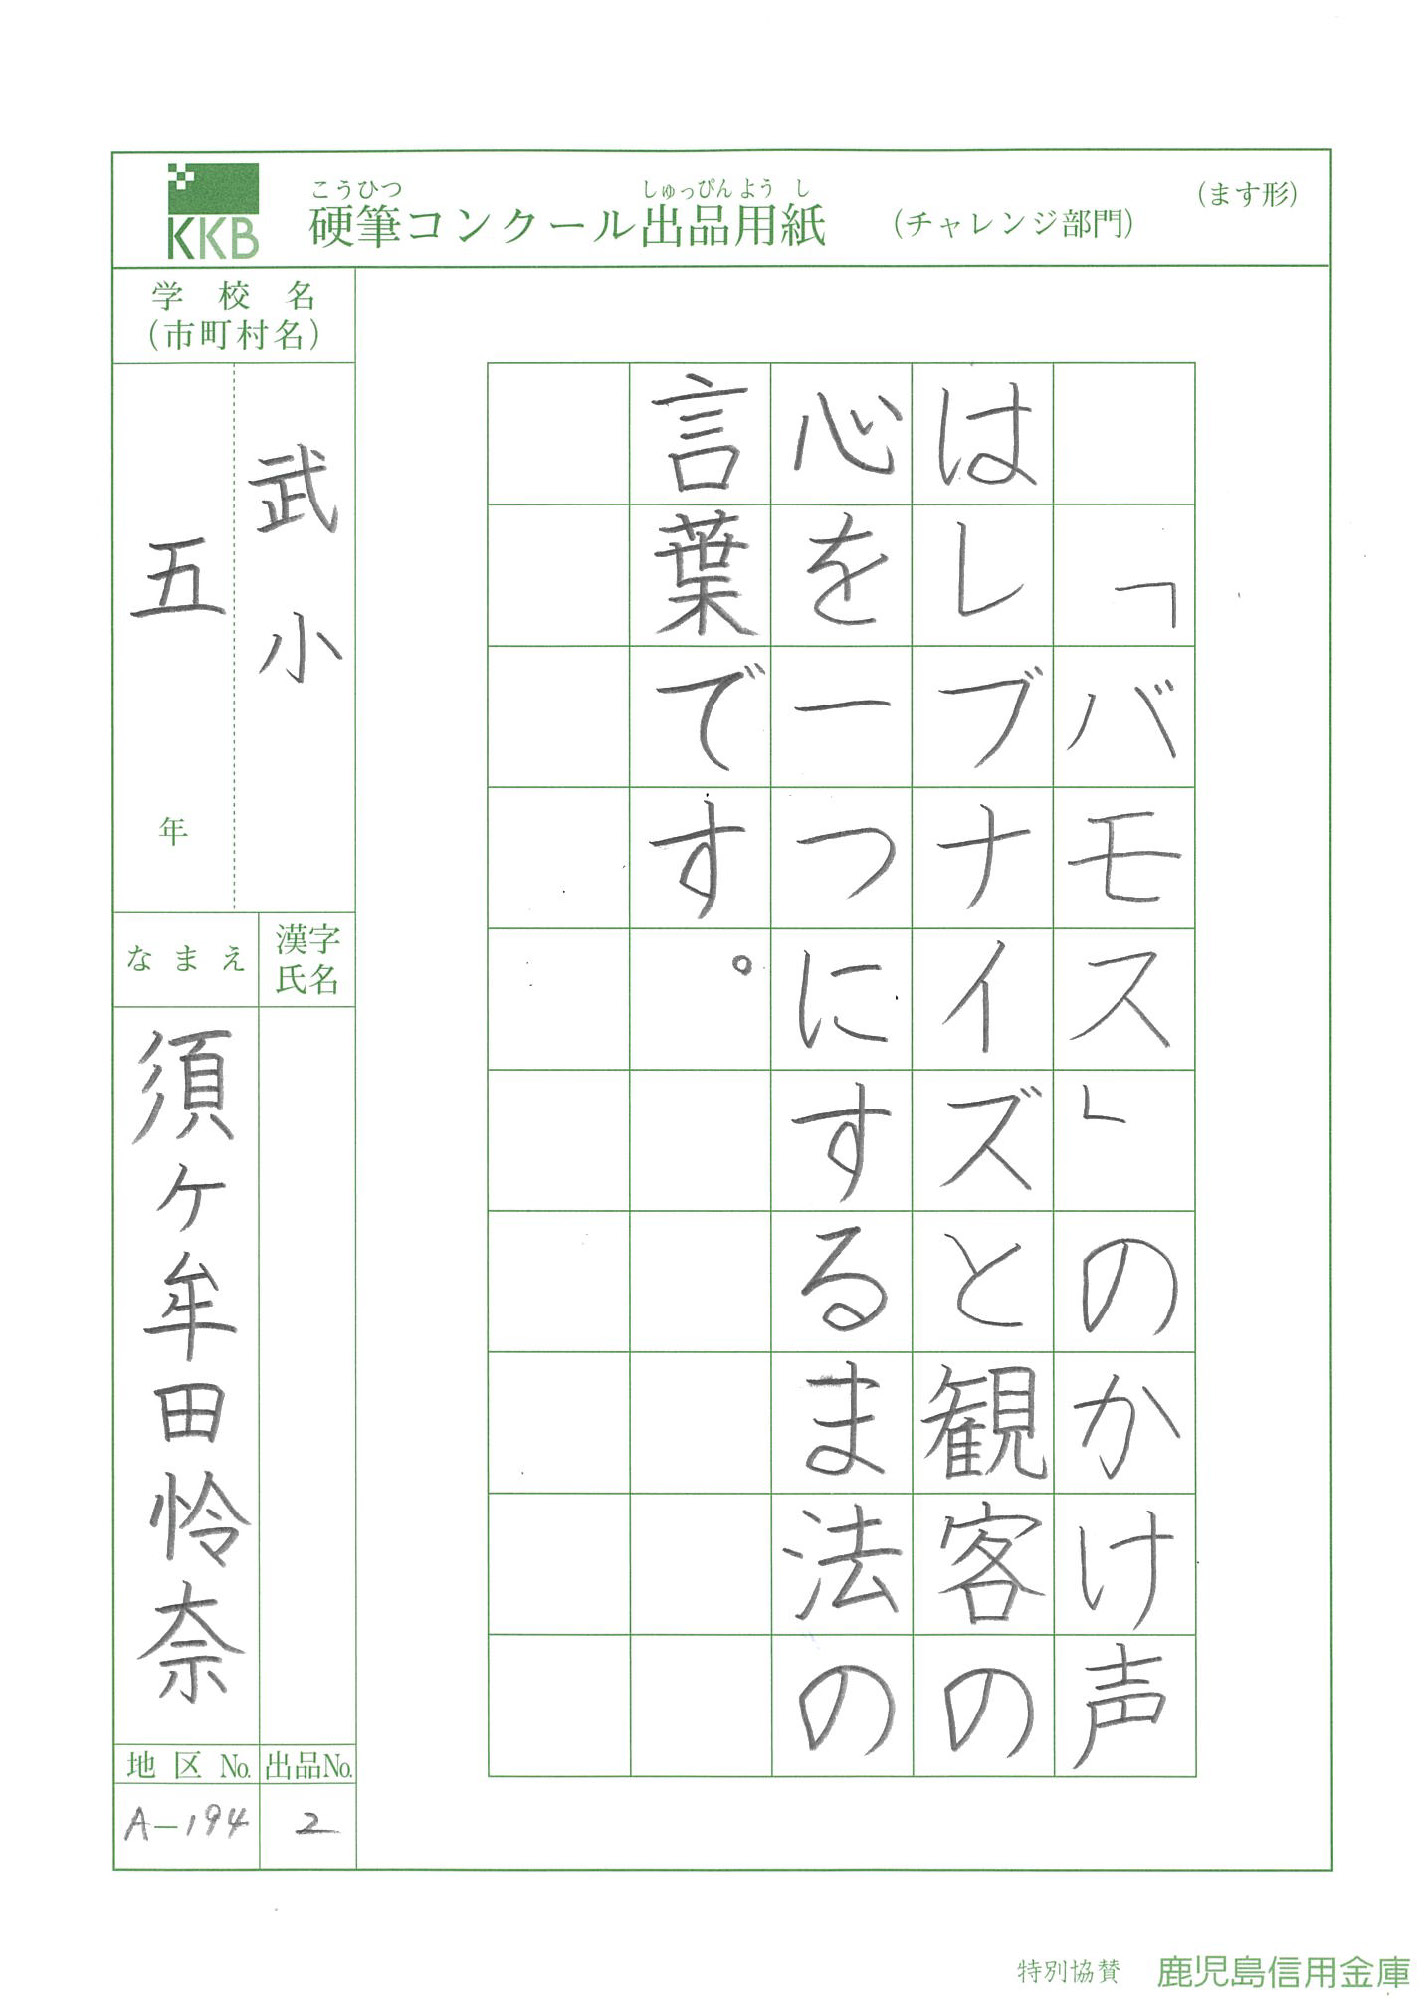 KKB
こうひつ しゅっぴんようし
硬筆コンクール出品用紙 (チャレンジ部門) (ます形)
「バモス」のかけ声
はレブナイズと観客の
心を一つにするま法の
言葉です。
学校名
(市町村名)
武小
五 年
漢字氏名
なまえ
須ケ牟田怜奈
地区No. 出品No.
A-194 2
特別協賛 鹿児島信用金庫